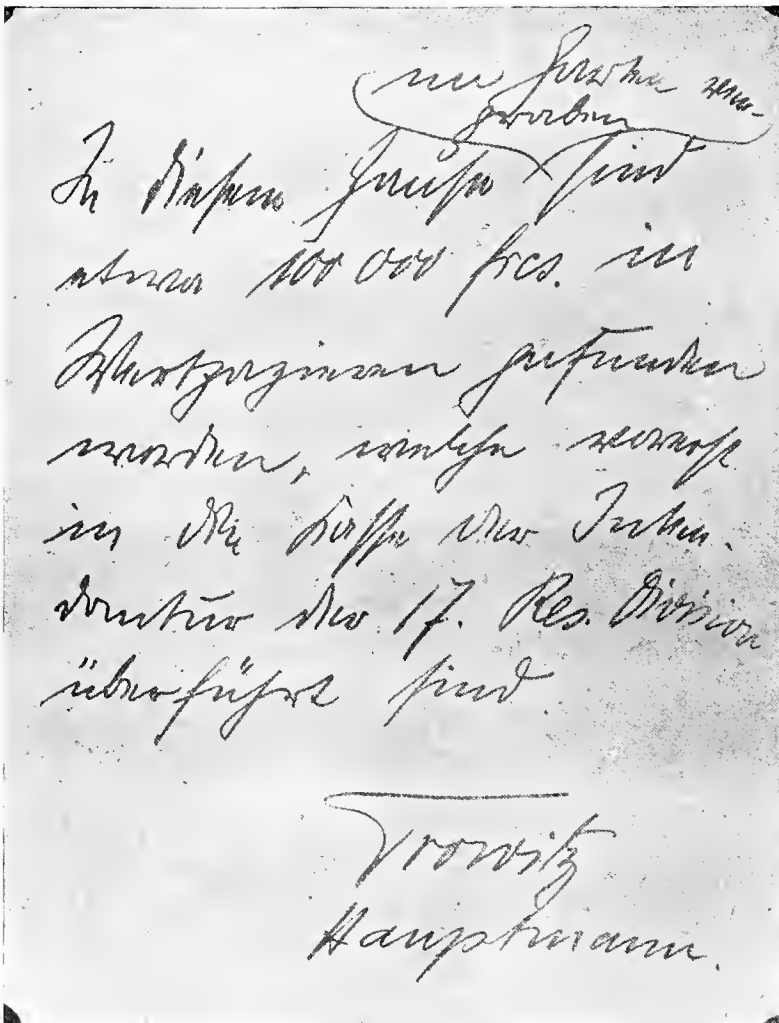 im Garten ver-
graben
In diesem Hause sind
etwa 100 000 frcs. in
Wertpapieren gefunden
worden, welche vorerst
in die Kasse der Inten-
dantur der 17. Res. Division
überführt sind.
Trowitz
Hauptmann.